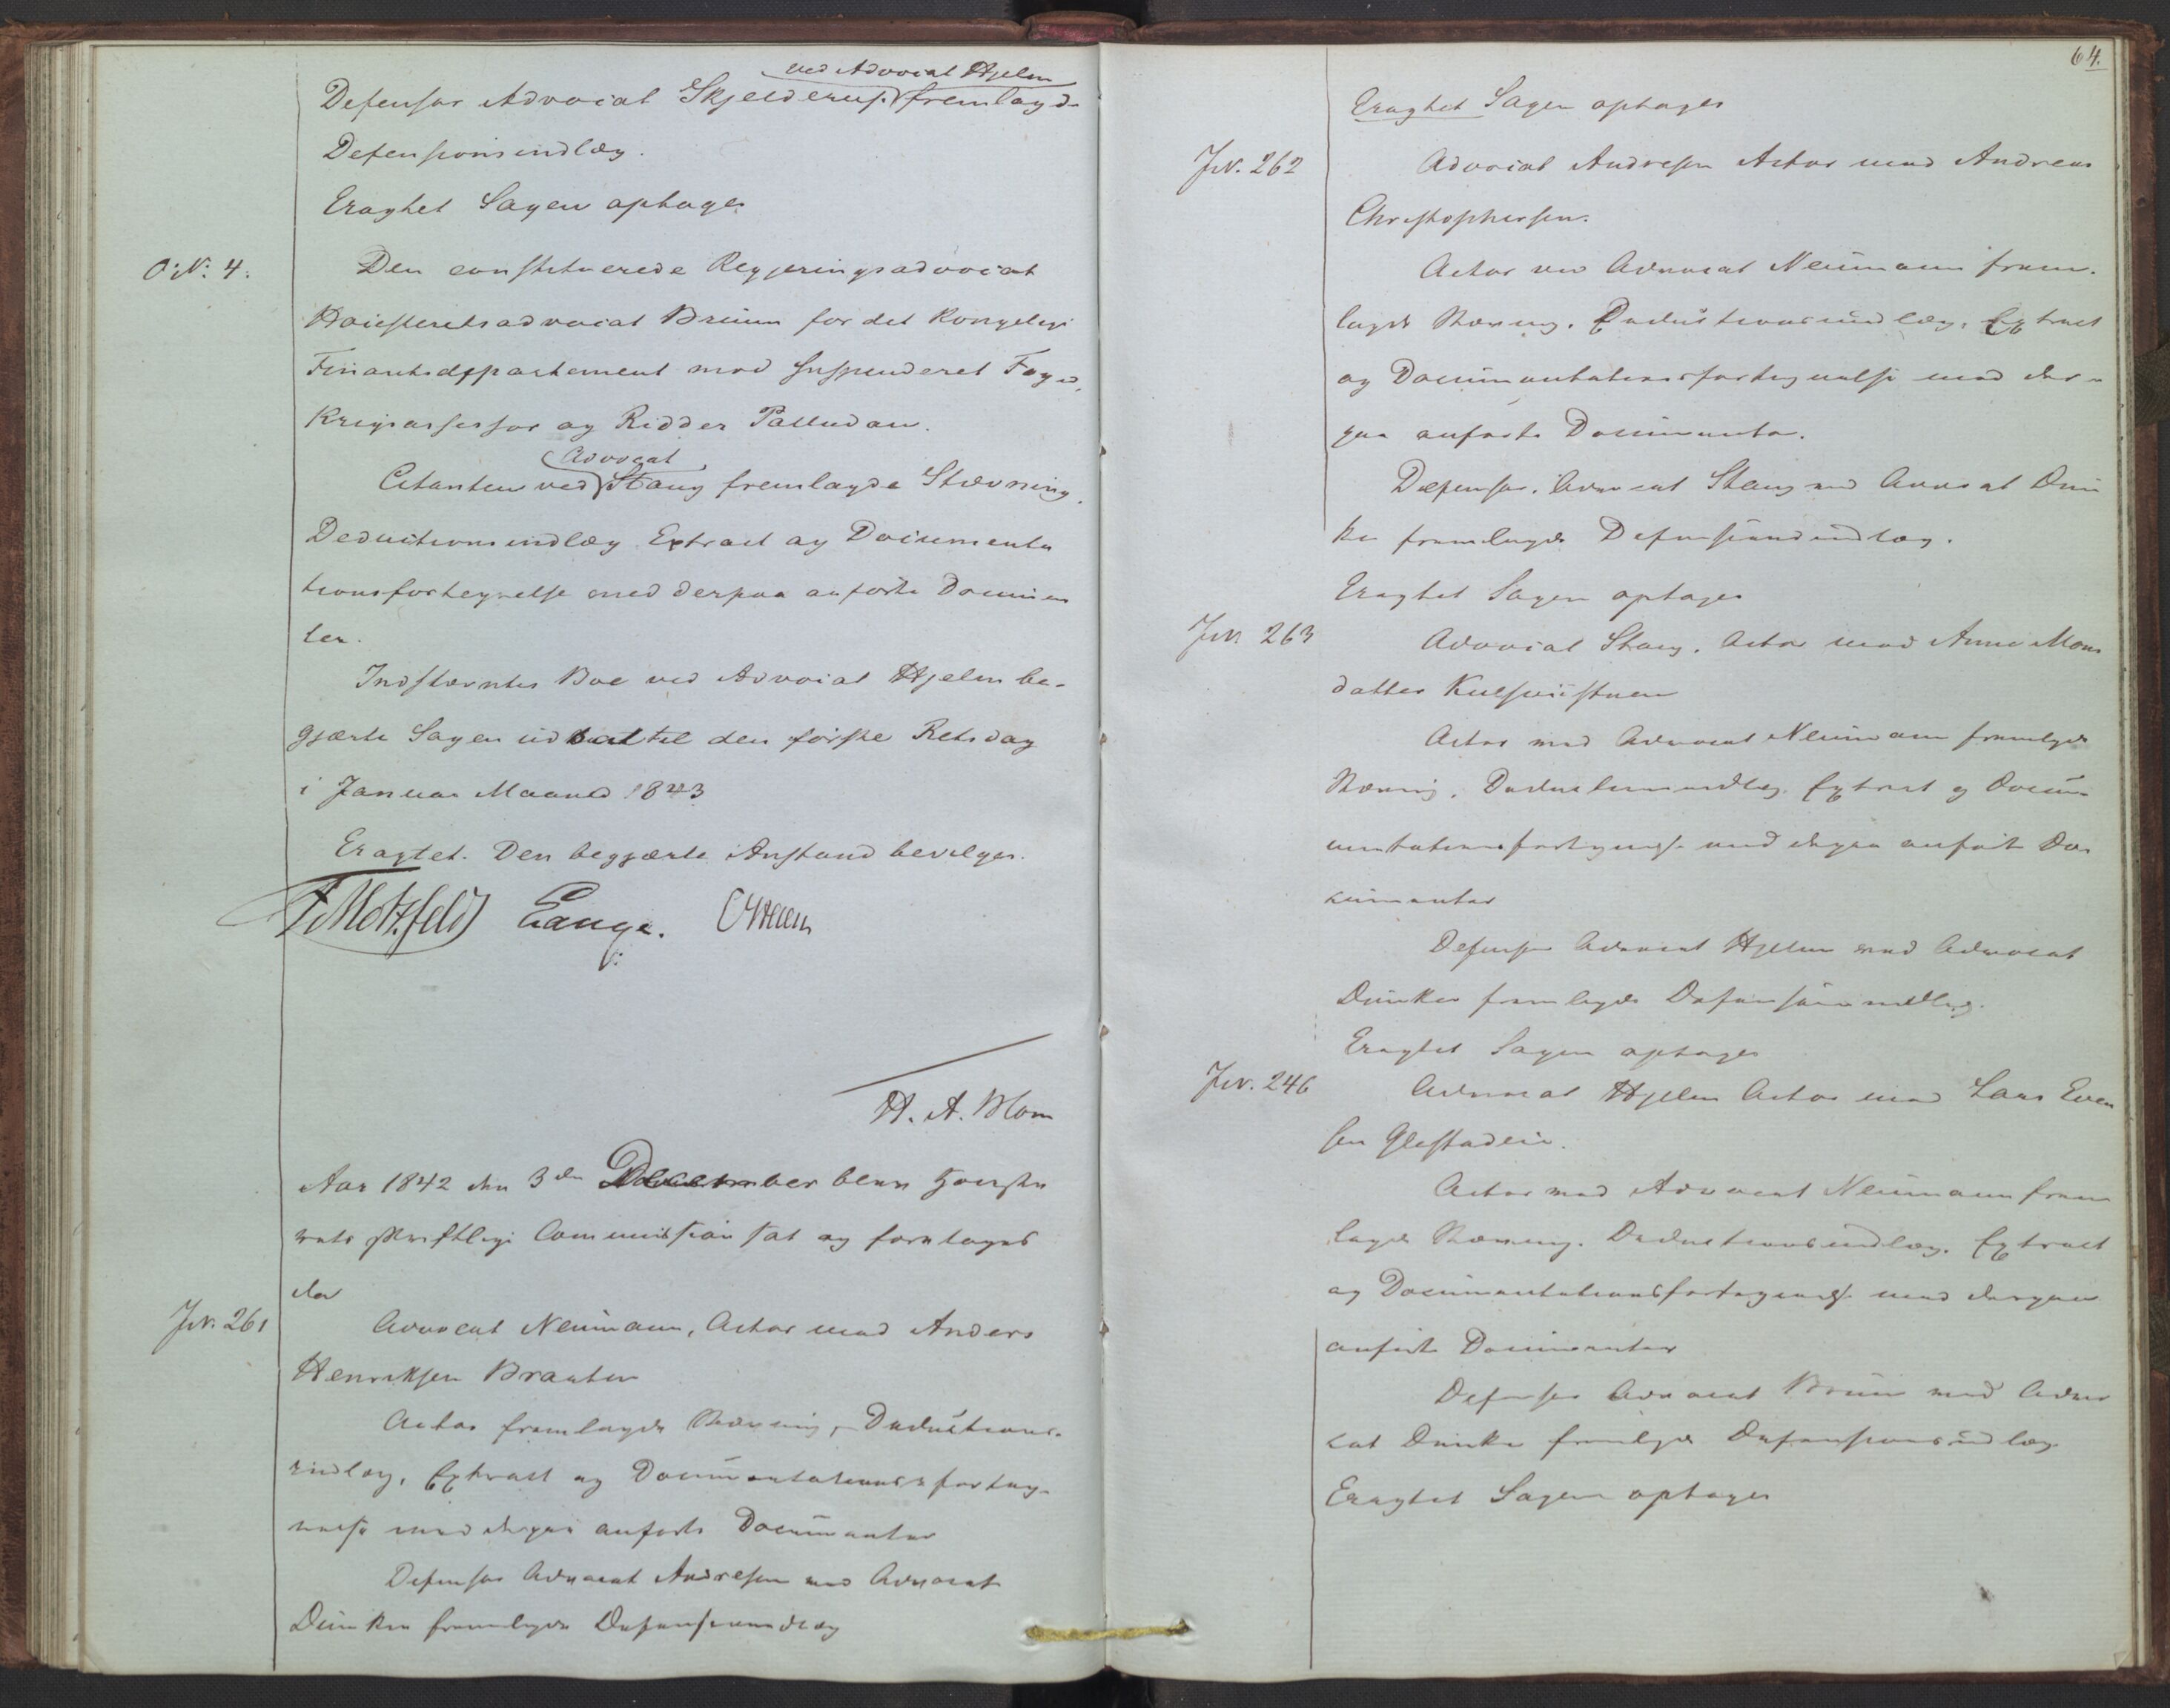 ved Advocat Hjelm
Defensor Advocat Skjelderup fremlagde
Defensionsindlæg.
Eragtet Sagen optages
O: N: 4.
Den constituerede Regjeringsadvocat
Høiesteretsadvocat Bruun for det Kongelige
Finantsdepartement mod suspenderet Foged,
Krigsassessor og Ridder Palludan.
Advocat
Citanten ved Stang fremlagde Stævning,
Deductionsindlæg Extract og Documenta
tionsfortegnelse med derpaa anførte Documen
ter.
Indstævntes Boe ved Advocat Hjelm be-
gjærte Sagen udsat til den første Retsdag
i Januar Maaned 1843
Eragtet. Den begjærte Anstand bevilges.
P Motzfeldt Lange.
H. A. Blom
Aar 1842 den 3de December blev Høieste
rets skriftlige Commission sat og foretages
der
J N. 261
Advocat Neumann, Actor mod Anders
Henriksen Braaten
Actor fremlagde Stævning, Deductions-
indlæg, Extract og Documentationsforteg-
nelse med derpaa anførte Documenter
Defensor Advocat Andresen ved Advocat
Dunker fremlagde Defensionsindlæg
64.
Eragtet Sagen optages
J N. 262
Advocat Andresen Actor mod Andreas
Christophersen.
Actor ved Advocat Neumann frem-
lagde Stævning, Deductionsindlæg, Extract
og Documentationsfortegnelse med der-
paa anførte Documenter.
Defensor, Advocat Stang ved Advocat Dun
ker fremlagde Defensionsindlæg.
Eragtet Sagen optages
J N. 263
Advocat Stang, Actor mod Anne Mons
datter
Actor ved Advocat Neumann fremlagde
Stævning, Deductionsindlæg, Extract og Docu-
mentationsfortegnelse med derpaa anførte Do-
cumenter
Defensor Advocat Hjelm ved Advocat
Dunker fremlagde Defensionsindlæg.
Eragtet Sagen optages
J N. 246
Advocat Hjelm Actor mod Lars Even
sen
Actor ved Advocat Neumann frem
lagde Stævning. Deductionsindlæg. Extract
og Documentationsfortegnelse med derpaa
anførte Documenter
Defensor Advocat Bruun ved Advo
cat Dunker fremlagde Defensionsindlæg
Eragtet Sagen optages